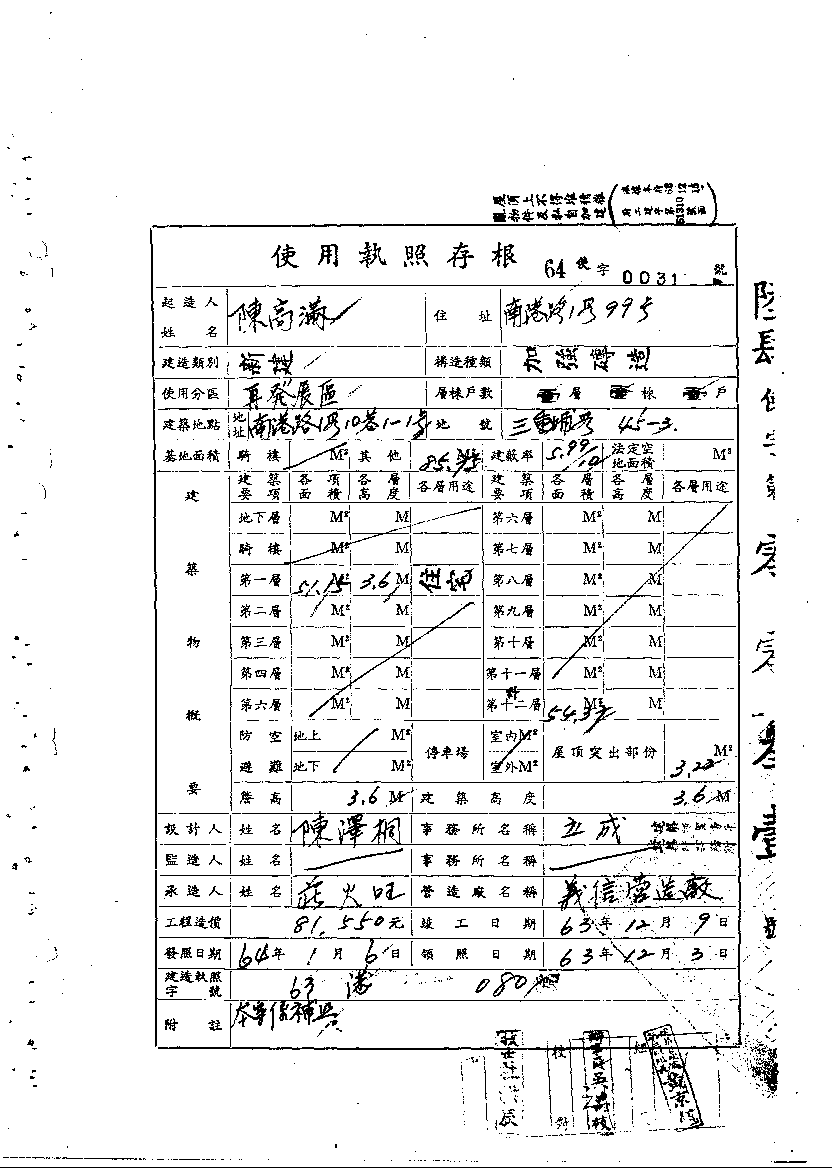 屋頂上不得堆積雜
物件及私自加建
使用執照存根 64 使字 0031 號
起造人姓名 陳高滿 住址 南港路1段99號
建造類別 新建 構造種類 加強磚造
使用分區 再發展區 層棟戶數 壹層 壹棟 壹戶
建築地點 地址 南港路1段10巷1-1號 地號 三重埔段 45-3
基地面積 騎樓 M² 其他 85.95 M² 建蔽率 5.99/10 法定空地面積 M²
建築要項 各項面積 各層高度 各層用途 建築要項 各層面積 各層高度 各層用途
建築物概要
地下層 M² M 第六層 M² M
騎樓 M² M 第七層 M² M
第一層 51.15 M² 3.6 M 住宅 第八層 M² M
第二層 M² M 第九層 M² M
第三層 M² M 第十層 M² M
第四層 M² M 第十一層 M² M
第六層 M² M 第十二層 54.37 M² M
防空避難 地上 M² 地下 M² 停車場 室內M² 室外M² 屋頂突出部份 3.22 M²
簷高 3.6 M 建築高度 3.6 M
設計人 姓名 陳澤桐 事務所名稱 立成
監造人 姓名 事務所名稱
承造人 姓名 莊火旺 營造廠名稱 義信營造廠
工程造價 81,550元 竣工日期 63年12月9日
發照日期 64年1月6日 領照日期 63年12月3日
建造執照字號 63 港 080
附註 本案係補照